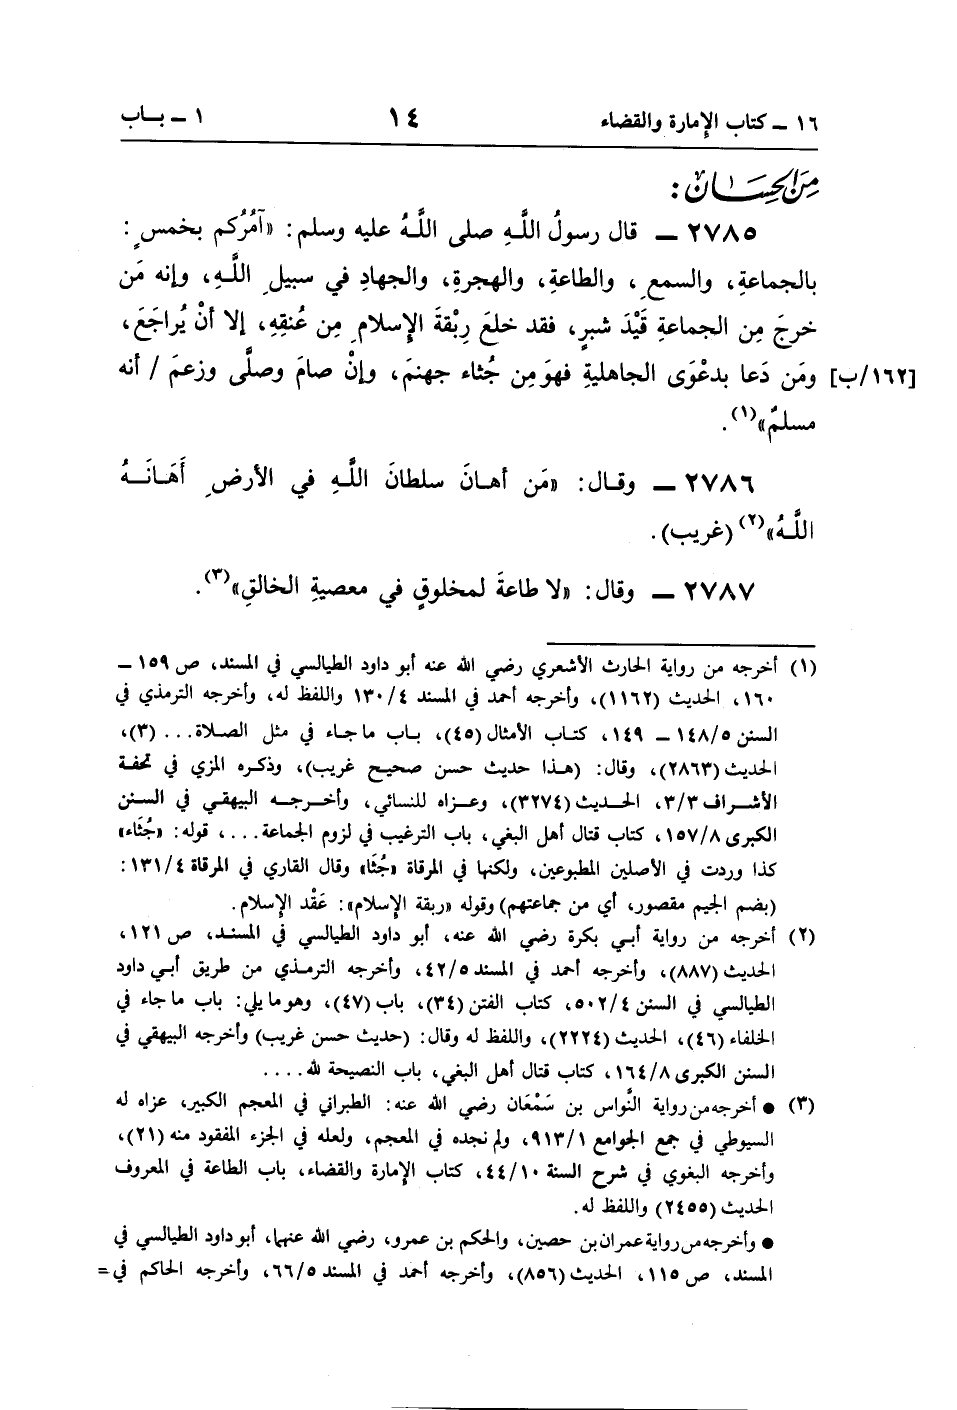 ١٦ ـ كتاب الإمارة والقضاء ١٤ ١ ـ باب
مِنَ الحِسَان :
٢٧٨٥ ـ قال رسولُ اللَّهِ صلى اللَّهُ عليه وسلم: «آمُرُكم بخمسٍ:
بالجماعةِ، والسمعِ، والطاعةِ، والهجرةِ، والجهادِ في سبيلِ اللَّهِ، وإنه مَن
خرجَ مِن الجماعةِ قَيْدَ شبرٍ، فقد خلعَ رِبْقةَ الإسلامِ مِن عُنقِهِ، إلا أنْ يُراجَعَ،
[١٦٢/ب] ومَن دَعا بدعْوَى الجاهليةِ فهوَ مِن جُثاء جهنمَ، وإنْ صامَ وصلَّى وزعمَ / أنه
مسلمٌ»(١).
٢٧٨٦ ـ وقال: «مَن أهانَ سلطانَ اللَّهِ في الأرضِ أَهَانَهُ
اللَّهُ»(٢) (غريب).
٢٧٨٧ ـ وقال: «لا طاعةَ لمخلوقٍ في معصيةِ الخالقِ»(٣).
(١) أخرجه من رواية الحارث الأشعري رضي الله عنه أبو داود الطيالسي في المسند، ص ١٥٩ ـ
١٦٠، الحديث (١١٦٢)، وأخرجه أحمد في المسند ١٣٠/٤ واللفظ له، وأخرجه الترمذي في
السنن ١٤٨/٥ ـ ١٤٩، كتاب الأمثال (٤٥)، باب ما جاء في مثل الصلاة... (٣)،
الحديث (٢٨٦٣)، وقال: (هذا حديث حسن صحيح غريب)، وذكره المزي في تحفة
الأشراف ٣/٣، الحديث (٣٢٧٤)، وعزاه للنسائي، وأخرجه البيهقي في السنن
الكبرى ١٥٧/٨، كتاب قتال أهل البغي، باب الترغيب في لزوم الجماعة...، قوله: «جُثَاء»
كذا وردت في الأصلين المطبوعين، ولكنها في المرقاة «جُثَا» وقال القاري في المرقاة ١٣١/٤:
(بضم الجيم مقصور، أي من جماعتهم) وقوله «ربقة الإسلام»: عَقْد الإسلام.
(٢) أخرجه من رواية أبي بكرة رضي الله عنه، أبو داود الطيالسي في المسند، ص ١٢١،
الحديث (٨٨٧)، وأخرجه أحمد في المسند ٤٢/٥، وأخرجه الترمذي من طريق أبي داود
الطيالسي في السنن ٥٠٢/٤، كتاب الفتن (٣٤)، باب (٤٧)، وهو ما يلي: باب ما جاء في
الخلفاء (٤٦)، الحديث (٢٢٢٤)، واللفظ له وقال: (حديث حسن غريب) وأخرجه البيهقي في
السنن الكبرى ١٦٤/٨، كتاب قتال أهل البغي، باب النصيحة لله....
(٣) ● أخرجه من رواية النَّواس بن سَمْعَان رضي الله عنه: الطبراني في المعجم الكبير، عزاه له
السيوطي في جمع الجوامع ٩١٣/١، ولم نجده في المعجم، ولعله في الجزء المفقود منه (٢١)،
وأخرجه البغوي في شرح السنة ٤٤/١٠، كتاب الإمارة والقضاء، باب الطاعة في المعروف
الحديث (٢٤٥٥) واللفظ له.
● وأخرجه من رواية عمران بن حصين، والحكم بن عمرو، رضي الله عنهما، أبو داود الطيالسي في
المسند، ص ١١٥، الحديث (٨٥٦)، وأخرجه أحمد في المسند ٦٦/٥، وأخرجه الحاكم في =